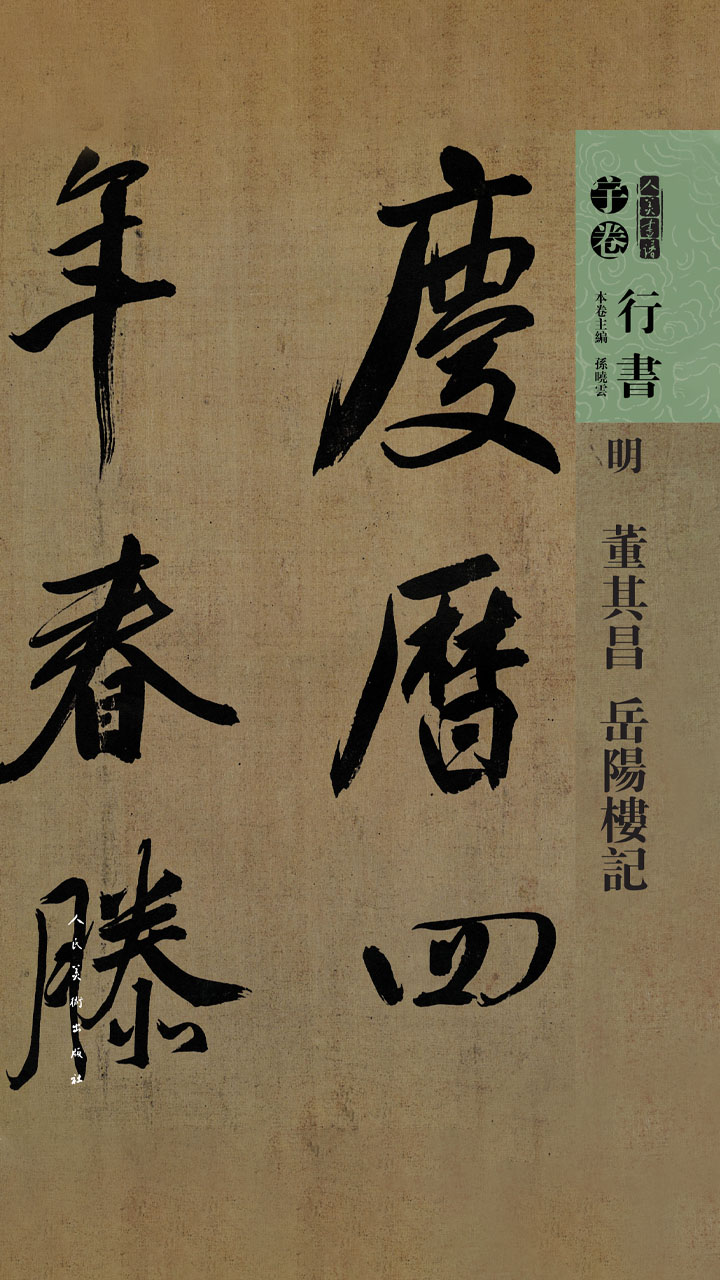 人美書譜
宇卷
行書
本卷主編 孫曉雲
明 董其昌 岳陽樓記
慶曆四
年春滕
人民美術出版社